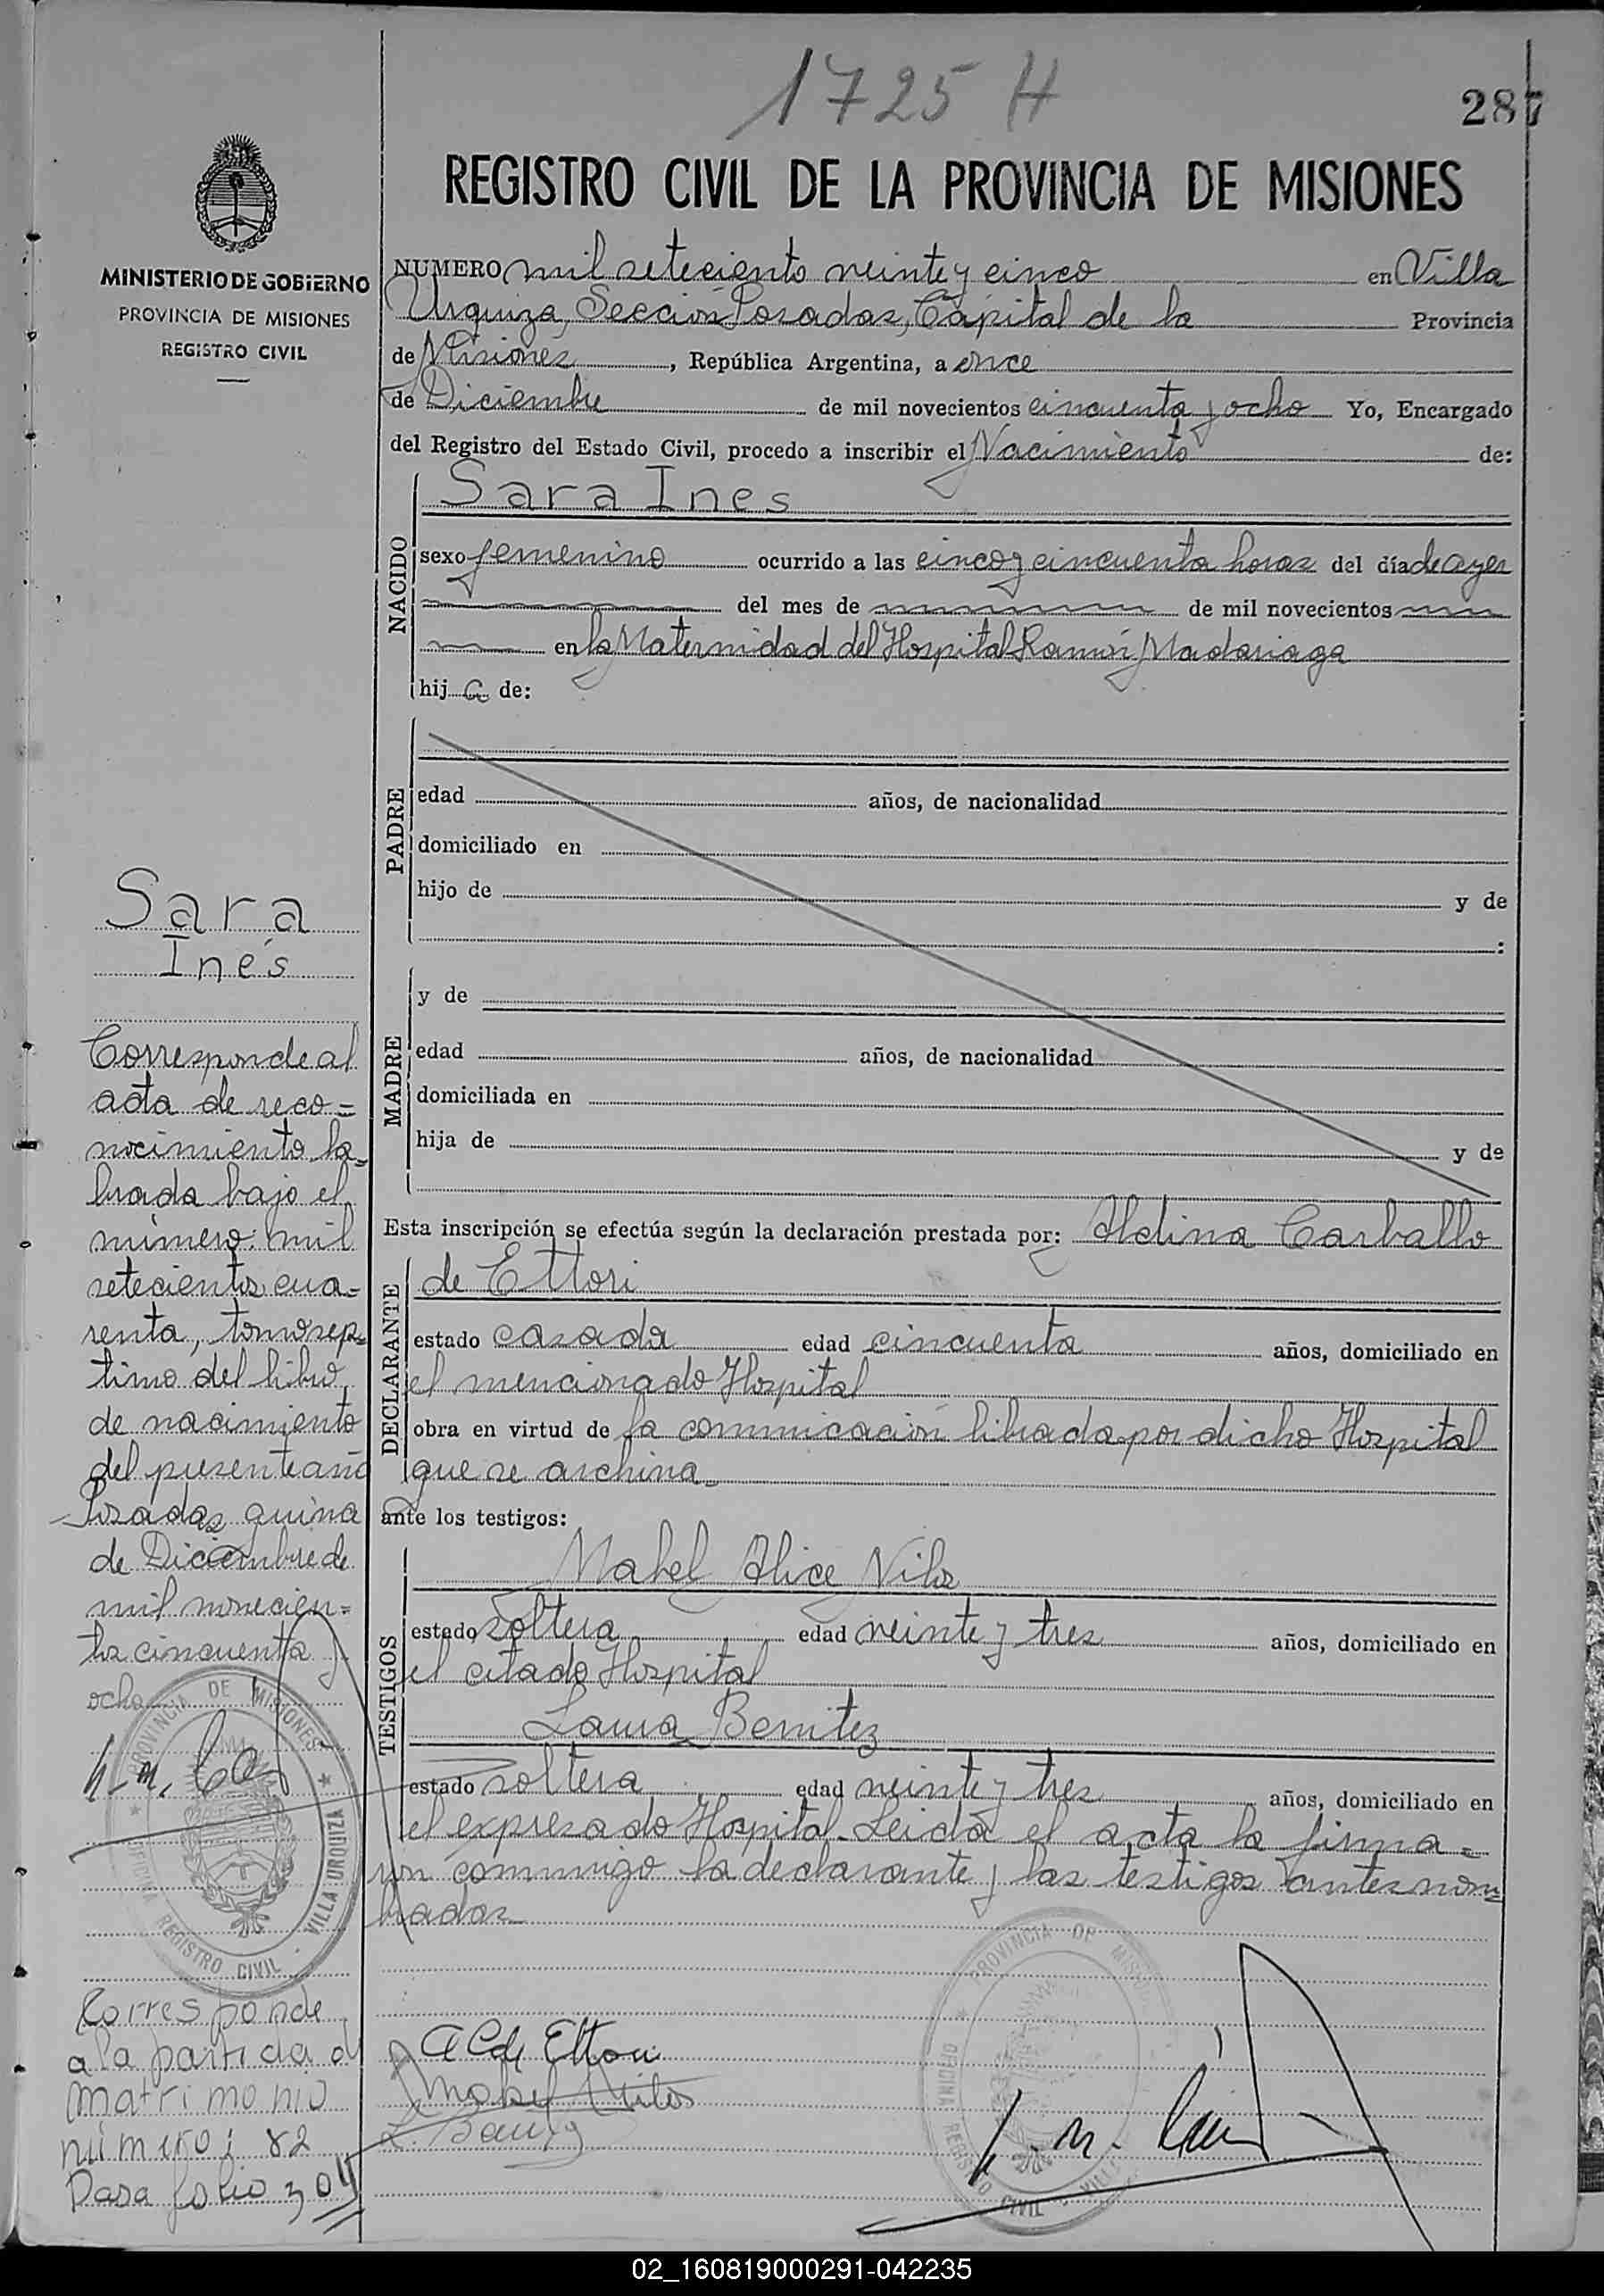 1725 H
287
REGISTRO CIVIL DE LA PROVINCIA DE MISIONES
MINISTERIO DE GOBIERNO
PROVINCIA DE MISIONES
REGISTRO CIVIL
NUMERO mil setesiento veinte y cinco en Villa
Urquiza, Sección Posadas, Capital de la Provincia
de Misiones, República Argentina, a once
de Diciembre de mil novecientos cincuenta y ocho Yo, Encargado
del Registro del Estado Civil, procedo a inscribir el Nacimiento de:
NACIDO
Sara Ines
sexo femenino ocurrido a las cinco y cincuenta horas del día de ayer
del mes de de mil novecientos
en la Maternidad del Hospital Ramón Madariaga
hij a de:
PADRE
edad años, de nacionalidad
domiciliado en
hijo de y de
:
MADRE
y de
edad años, de nacionalidad
domiciliada en
hija de y de
Esta inscripción se efectúa según la declaración prestada por: Aldina Carballo
DECLARANTE
de Ettori
estado casada edad cincuenta años, domiciliado en
el mencionado Hospital
obra en virtud de la comunicación librada por dicho Hospital
que se archiva.
ante los testigos:
TESTIGOS
Mabel Alice
estado soltera edad veinte y tres años, domiciliado en
el citado Hospital
Laura Benitez
estado soltera edad veinte y tres años, domiciliado en
el expresado Hospital. Leida el acta la firma=
ron conmigo la declarante y las testigos antes nom=
bradas
A C de Ettori
Mabel
Sara
Inés
Corresponde al
acta de reco=
nocimiento la=
brada bajo el
número: mil
setecientos cua=
renta, tomo sep=
timo del libro
de nacimiento
del presente año
Posadas quince
de Diciembre de
mil novecien=
tos cincuenta y
ocho
PROVINCIA DE MISIONES
REGISTRO CIVIL
VILLA URQUIZA
Corresponde
a la partida d
matrimonio
número: 82
Pasa folio 304
PROVINCIA DE
REGISTRO CIVIL
02_160819000291-042235